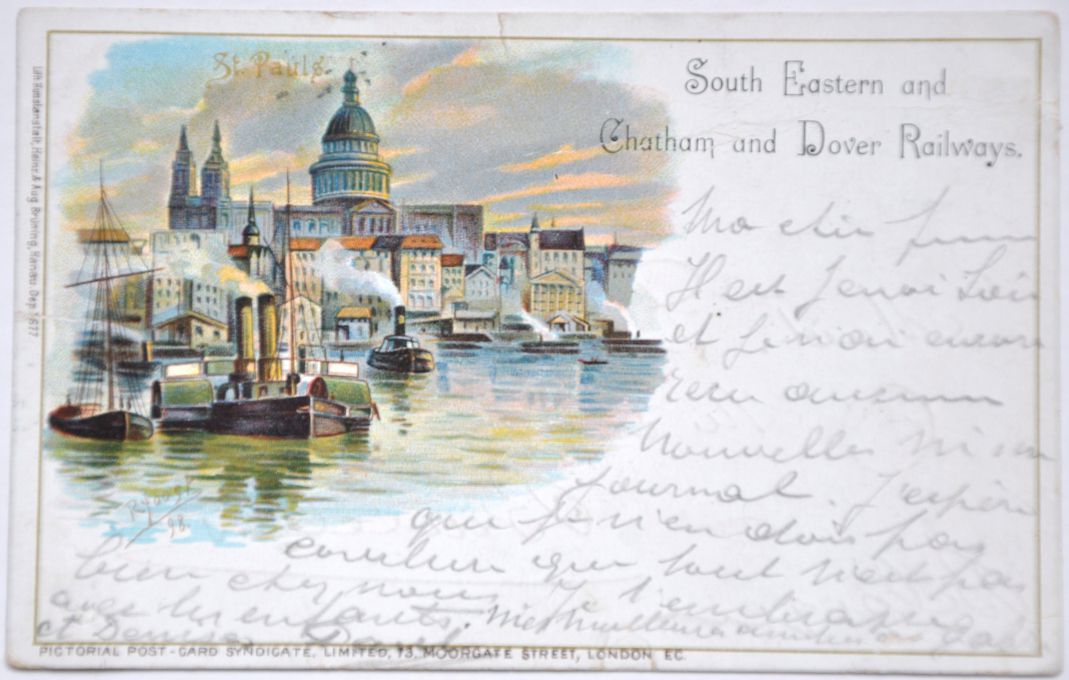 St. Pauls.
South Eastern and
Chatham and Dover Railways.
Lith. Kunstanstalt, Heinr. & Aug. Brüning, Hanau. Dep. 1677
Ma
Il est
et je n'ai encore
reçu aucune
Nouvelles ni un
journal. J'espère
que je n'en dois pas
conclure que tout n'est pas
bien chez nous. Je t'embrasse
avec les enfants. Mes meilleures
et Denise. David
98.
PICTORIAL POST-CARD SYNDICATE, LIMITED, 73, MOORGATE STREET, LONDON EC.